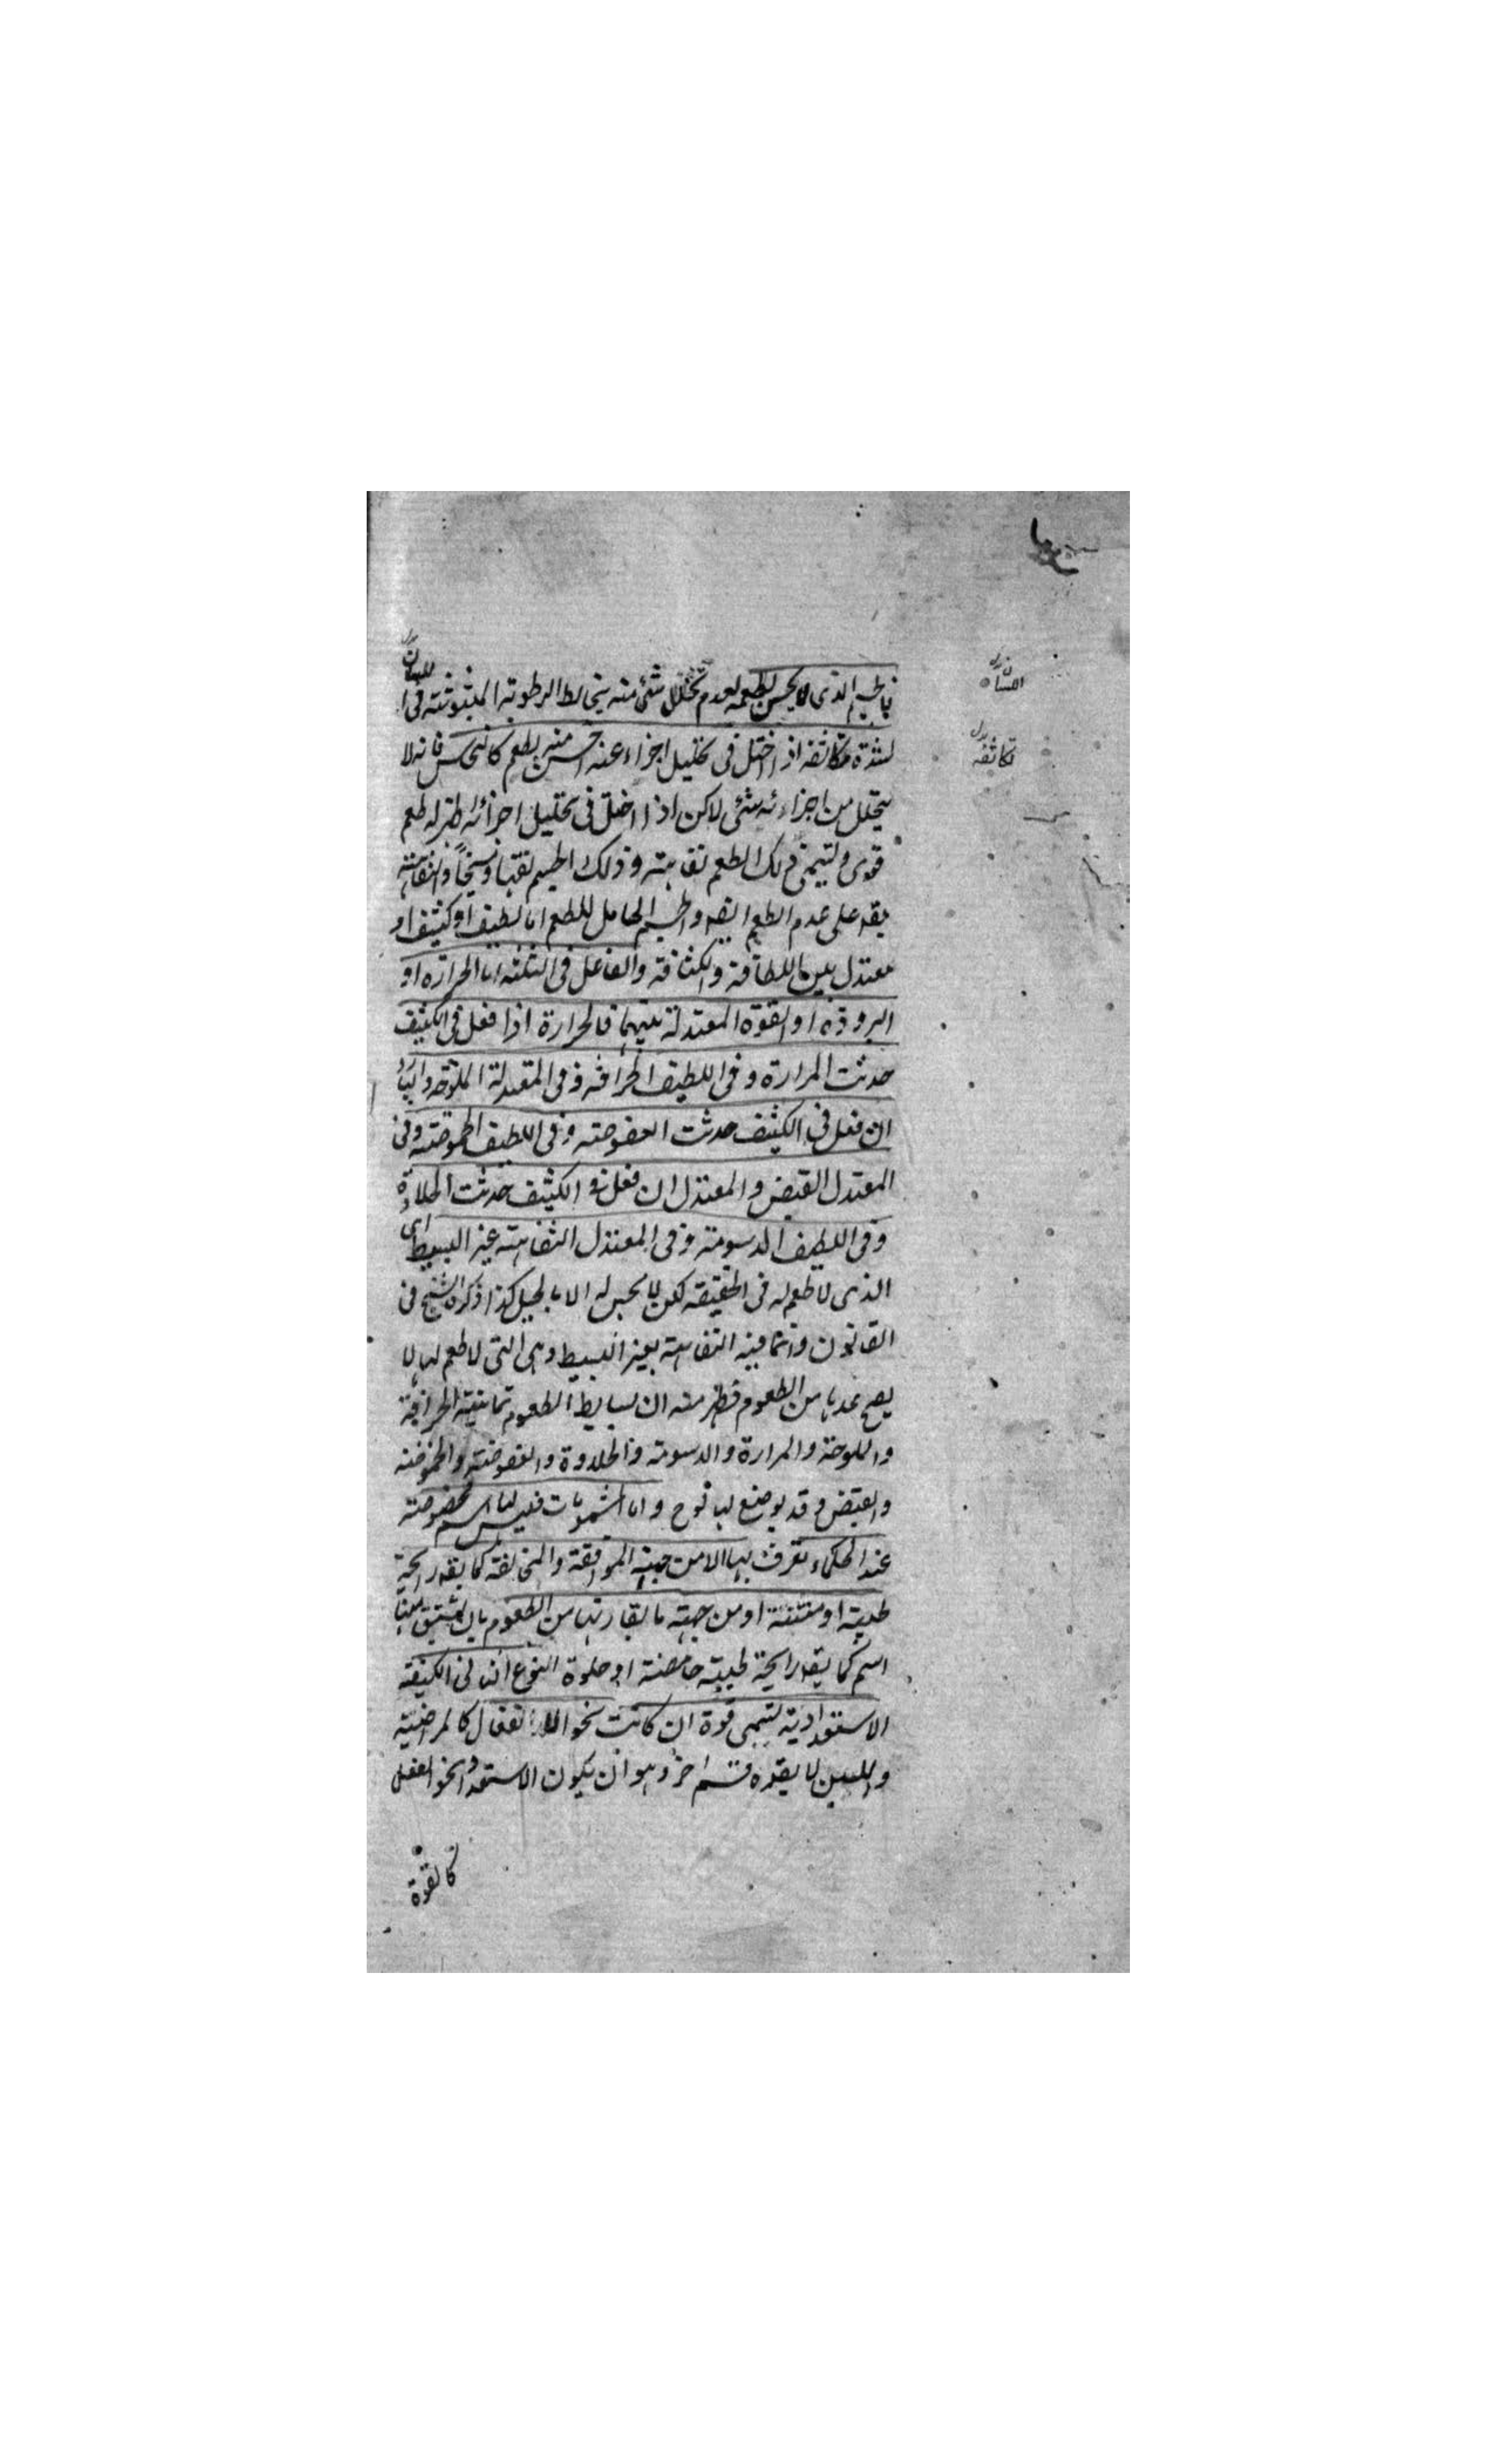 فالجسم الذى لا يحس بطعمه لعدم تحلل شئ منه يخالط الرطوبة المبثوثة فى اللسان
لشدة تكاثفه اذا احتيل فى تحليل اجزاء عنه احس منه بطعم كالنحاس فانه لا
يتحلل من اجزاءه شئ لاكن اذا احتيل فى تحليل اجزائه ظهر له طعم
قوى وليسمى ذلك الطعم تفاهته وذلك الجسم تفها ومسيخاً والتفاهته
يقه على عدم الطعم ايضه والجسم الحامل للطعم اما لطيف او كثيف او
معتدل بين اللطافة والكثافة والفاعل فى الثلثه اما الحرارة او
البرودة او القوة المعتدلة بينهما فالحرارة اذا فعل فى الكثيف
حدثت المرارة وفى اللطيف الحرافة وفى المعتدلة الملوحة والبارد
ان فعل فى الكثيف حدثت العفوصته وفى اللطيف الحموضته وفى
المعتدل القبض والمعتدل ان فعل فى الكثيف حدثت الحلاوة
وفى اللطيف الدسومة وفى المعتدل التفاهته غير البسيط اى
الذى لا طعم له فى الحقيقه لكن لا يحس له الا بالحيل كذا ذكره الشيخ فى
القانون وانما قيد التفاهته بغير البسيط وهى التى لا طعم لها لا
يصح عدها من الطعوم فظهر منه ان بسايط الطعوم ثمانية الحرافة
والملوحة والمرارة والدسومة والحلاوة والعفوصته والحموضة
والقبض وقد يوضع لها نوع واما المشمومات فليس لها اسم مخصوصته
عند الحكماء تعرف بها الا من جهة الموافقة والمخالفة كما يقه رايحة
طيبة او منتنة او من جهته ما يقارنها من الطعوم بان يشتق لها منها
اسم كما يقه رايحة طيبته حامضة او حلوة النوع الثانى الكيفيه
الاستعدادية لتسمى قوة ان كانت نحو اللاانفعال كالمراضية
واللين لا يقه قسم اخر وهو ان يكون الاستعداد نحو الفعل
كالقوة
اللسان
تكاثفه